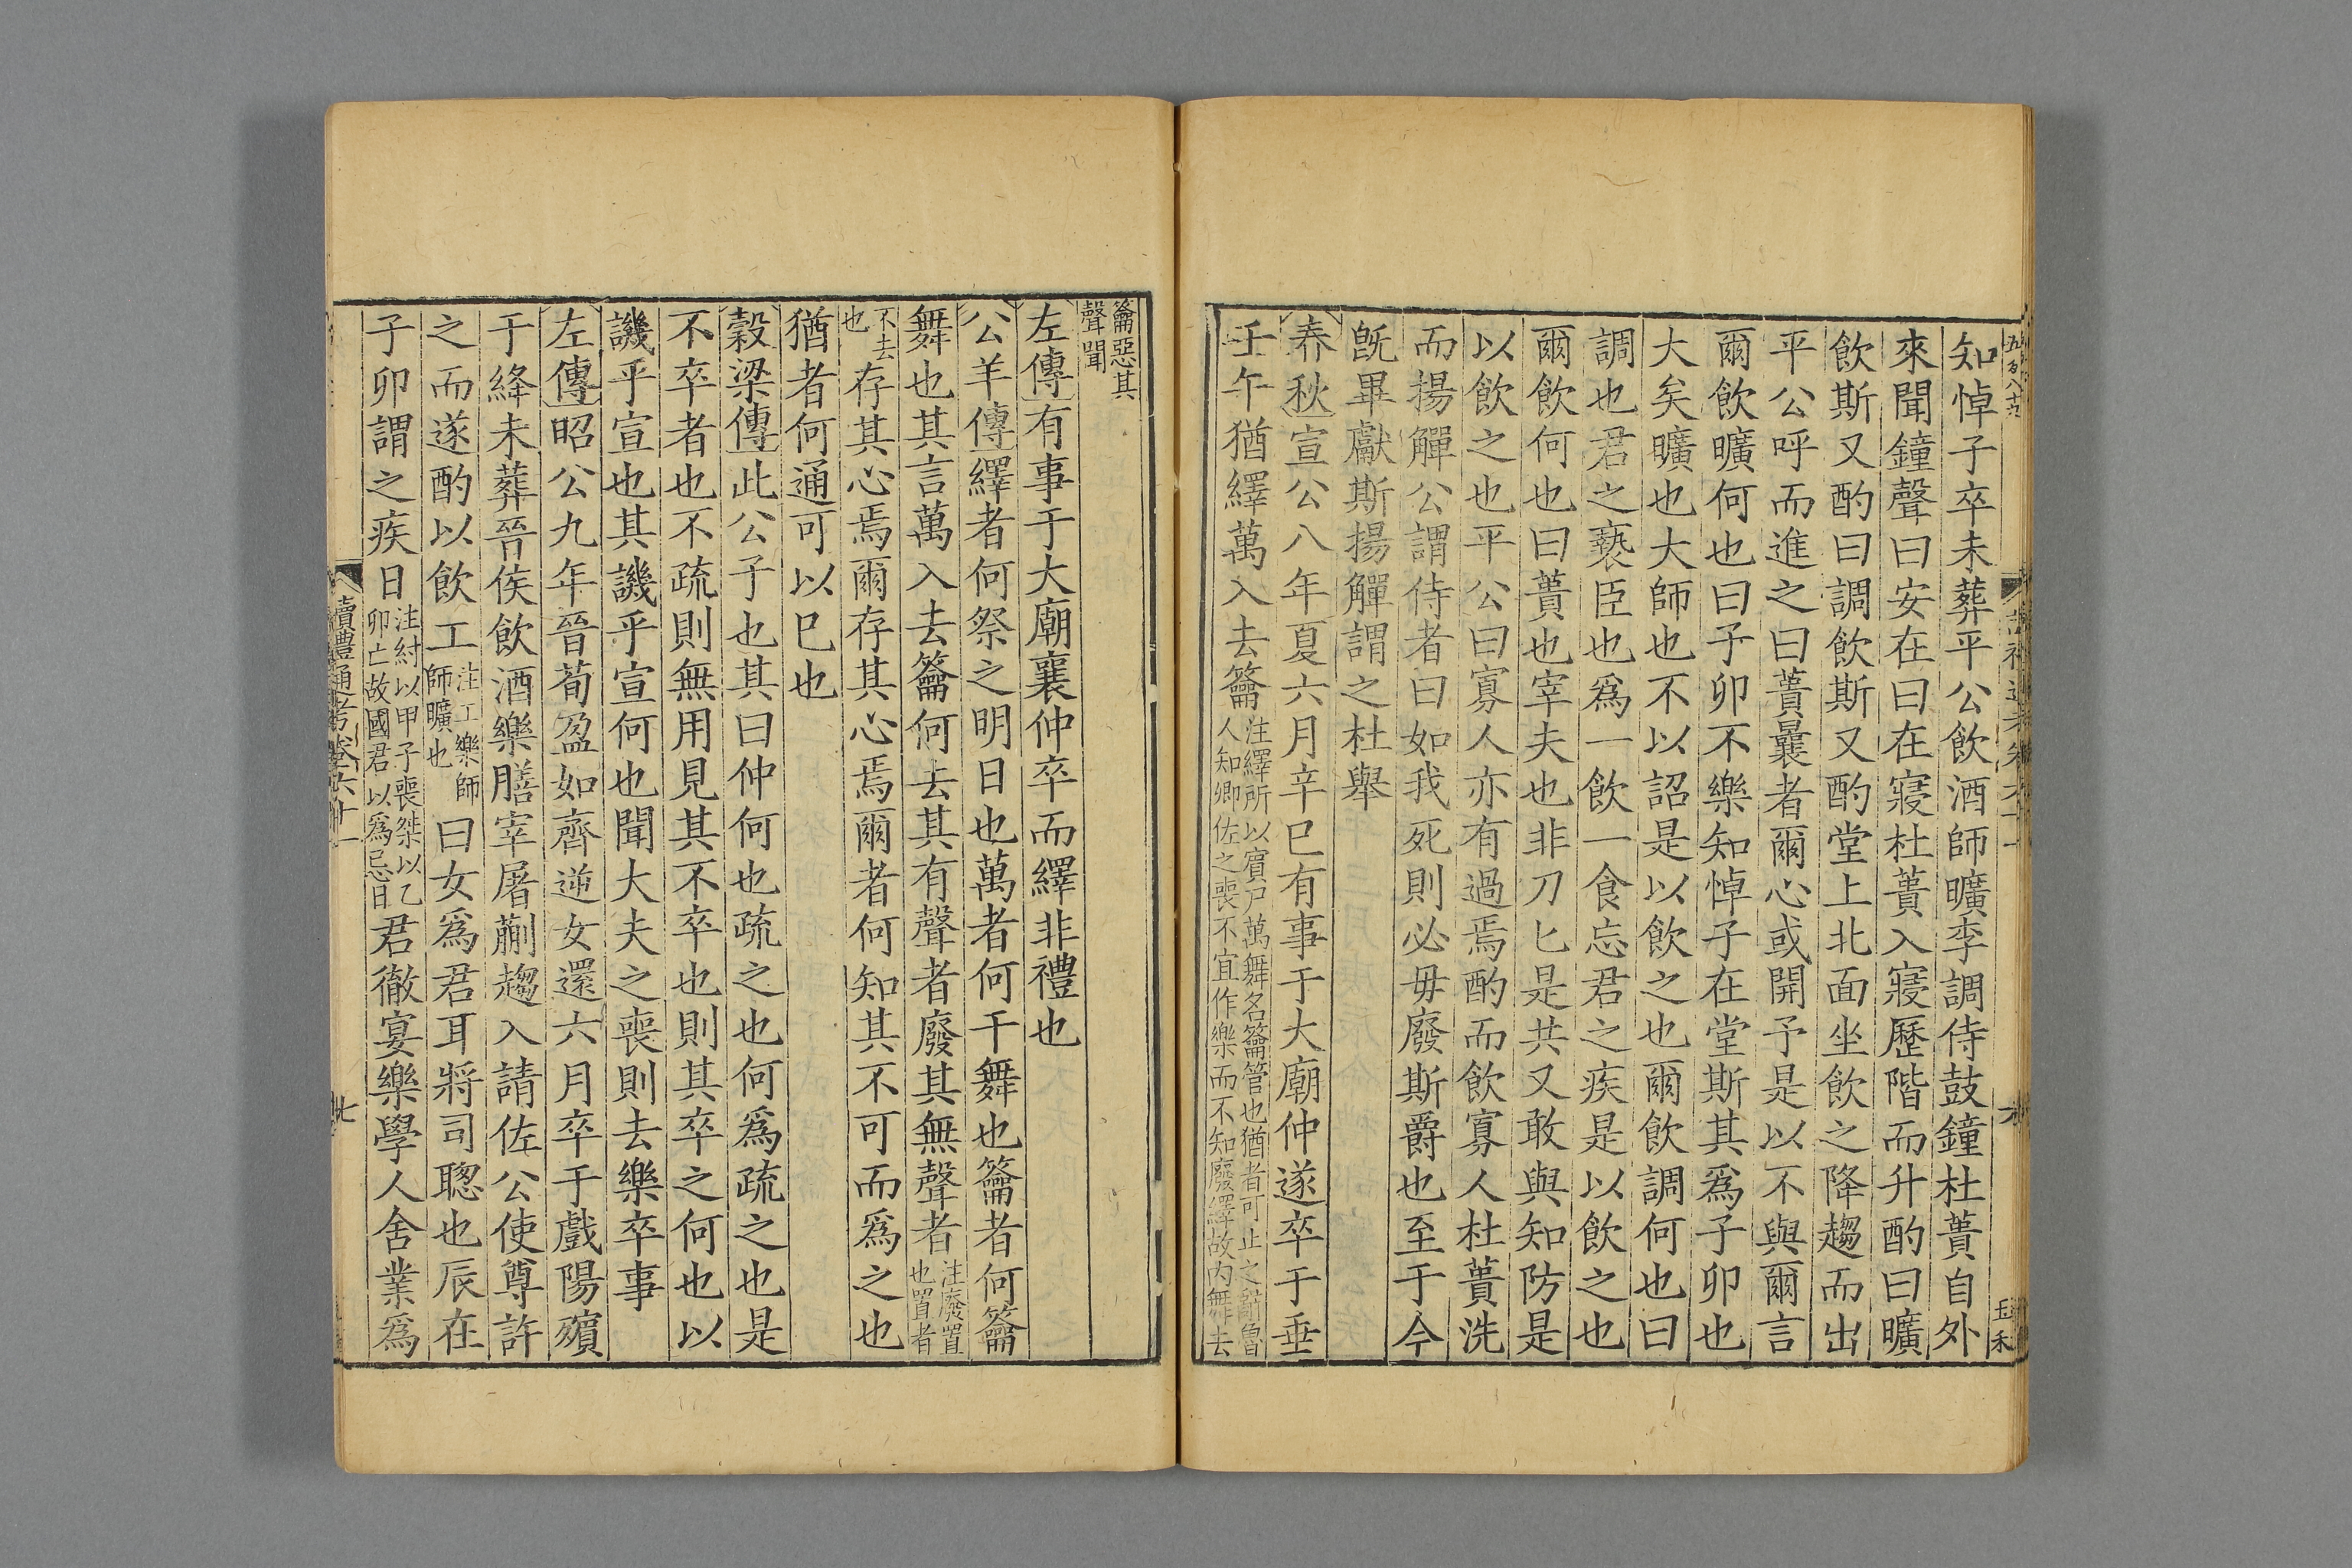 知悼子卒未葬平公飲酒師曠李調侍鼓鐘杜蕢自外
來聞鐘聲曰安在曰在寢杜蕢入寢歷階而升酌曰曠
飲斯又酌曰調飲斯又酌堂上北面坐飲之降趨而出
平公呼而進之曰蕢曩者爾心或開予是以不與爾言
爾飲曠何也曰子卯不樂知悼子在堂斯其爲子卯也
大矣曠也大師也不以詔是以飲之也爾飲調何也曰
調也君之褻臣也爲一飲一食忘君之疾是以飲之也
爾飲何也曰蕢也宰夫也非刀匕是共又敢與知防是
以飲之也平公曰寡人亦有過焉酌而飲寡人杜蕢洗
而揚觶公謂侍者曰如我死則必毋廢斯爵也至于今
旣畢獻斯揚觶謂之杜舉
春秋宣公八年夏六月辛巳有事于大廟仲遂卒于垂
壬午猶繹萬入去籥注繹所以賓尸萬舞名籥管也猶者可止之辭魯
人知卿佐之喪不宜作樂而不知廢繹故內舞去
籥惡其
聲聞
左傳有事于大廟襄仲卒而繹非禮也
公羊傳繹者何祭之明日也萬者何干舞也籥者何籥
舞也其言萬入去籥何去其有聲者廢其無聲者注廢置
也置者
不去
也存其心焉爾存其心焉爾者何知其不可而爲之也
猶者何通可以已也
穀梁傳此公子也其曰仲何也疏之也何爲疏之也是
不卒者也不疏則無用見其不卒也則其卒之何也以
譏乎宣也其譏乎宣何也聞大夫之喪則去樂卒事
左傳昭公九年晉荀盈如齊逆女還六月卒于戲陽殯
于絳未葬晉侯飲酒樂膳宰屠蒯趨入請佐公使尊許
之而遂酌以飲工注工樂師
師曠也曰女爲君耳將司聰也辰在
子卯謂之疾日注紂以甲子喪桀以乙
卯亡故國君以爲忌日君徹宴樂學人舍業爲
讀禮通考卷六十一